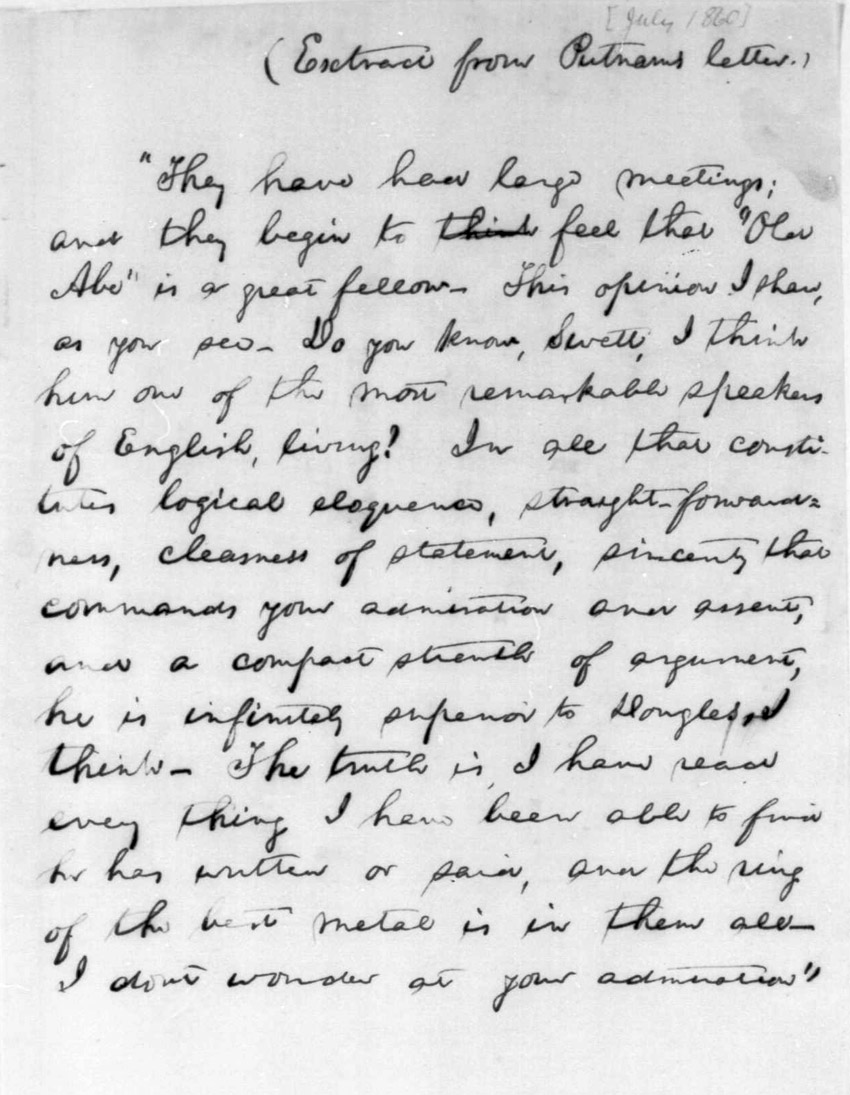 [July 1860]
(Exctract from Putnams letter.)
"They have had large meetings;
and they begin to think feel that "Old
Abe" is a great fellow— This opinion I share,
as you see— Do you know, Swett, I think
him one of the most remarkable speakers
of English, living! In all that consti-
tutes logical eloquence, straight-forward=
ness, clearness of statement, sincerity that
commands your admiration and assent,
and a compact strength of argument,
he is infinitely superior to Douglas, I
think— The truth is, I have read
every thing I have been able to find
he has written or said, and the ring
of the best metal is in them all—
I dont wonder at your admiration"